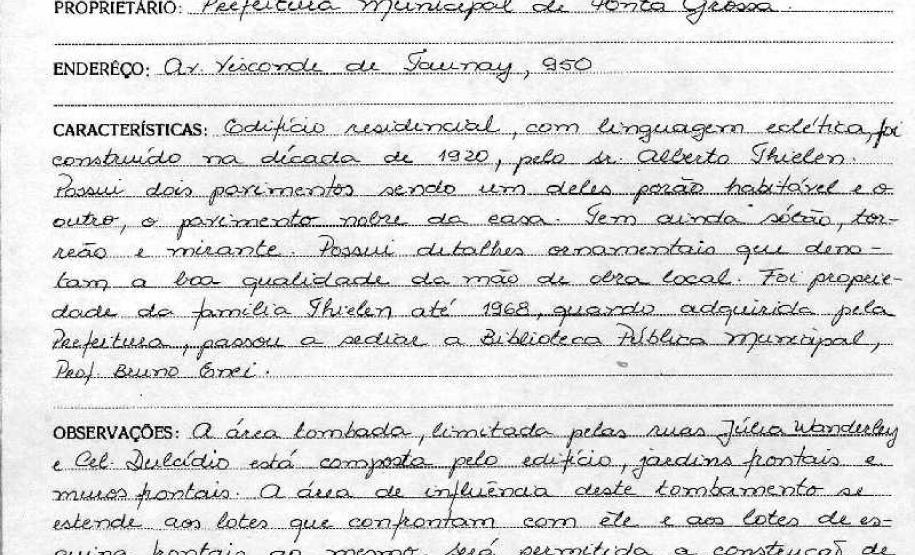 PROPRIETÁRIO: Prefeitura Municipal de Ponta Grossa.
ENDERÊÇO: Av. Visconde de Taunay, 950
CARACTERÍSTICAS: Edifício residencial, com linguagem eclética, foi
construído na década de 1920, pelo sr. Alberto Thielen.
Possui dois pavimentos sendo um deles porão habitável e o
outro, o pavimento nobre da casa. Tem ainda sótão, tor-
reão e mirante. Possui detalhes ornamentais que deno-
tam a boa qualidade da mão de obra local. Foi proprie-
dade da família Thielen até 1968, quando adquirida pela
Prefeitura, passou a sediar a Biblioteca Pública Municipal,
Prof. Bruno Enei.
OBSERVAÇÕES: A área tombada, limitada pelas ruas Júlia Wanderley
e Cel. Dulcídio está composta pelo edifício, jardins frontais e
muros frontais. A área de influência deste tombamento se
estende aos lotes que confrontam com êle e aos lotes de es-
quina frontais ao mesmo. Será permitida a construção de